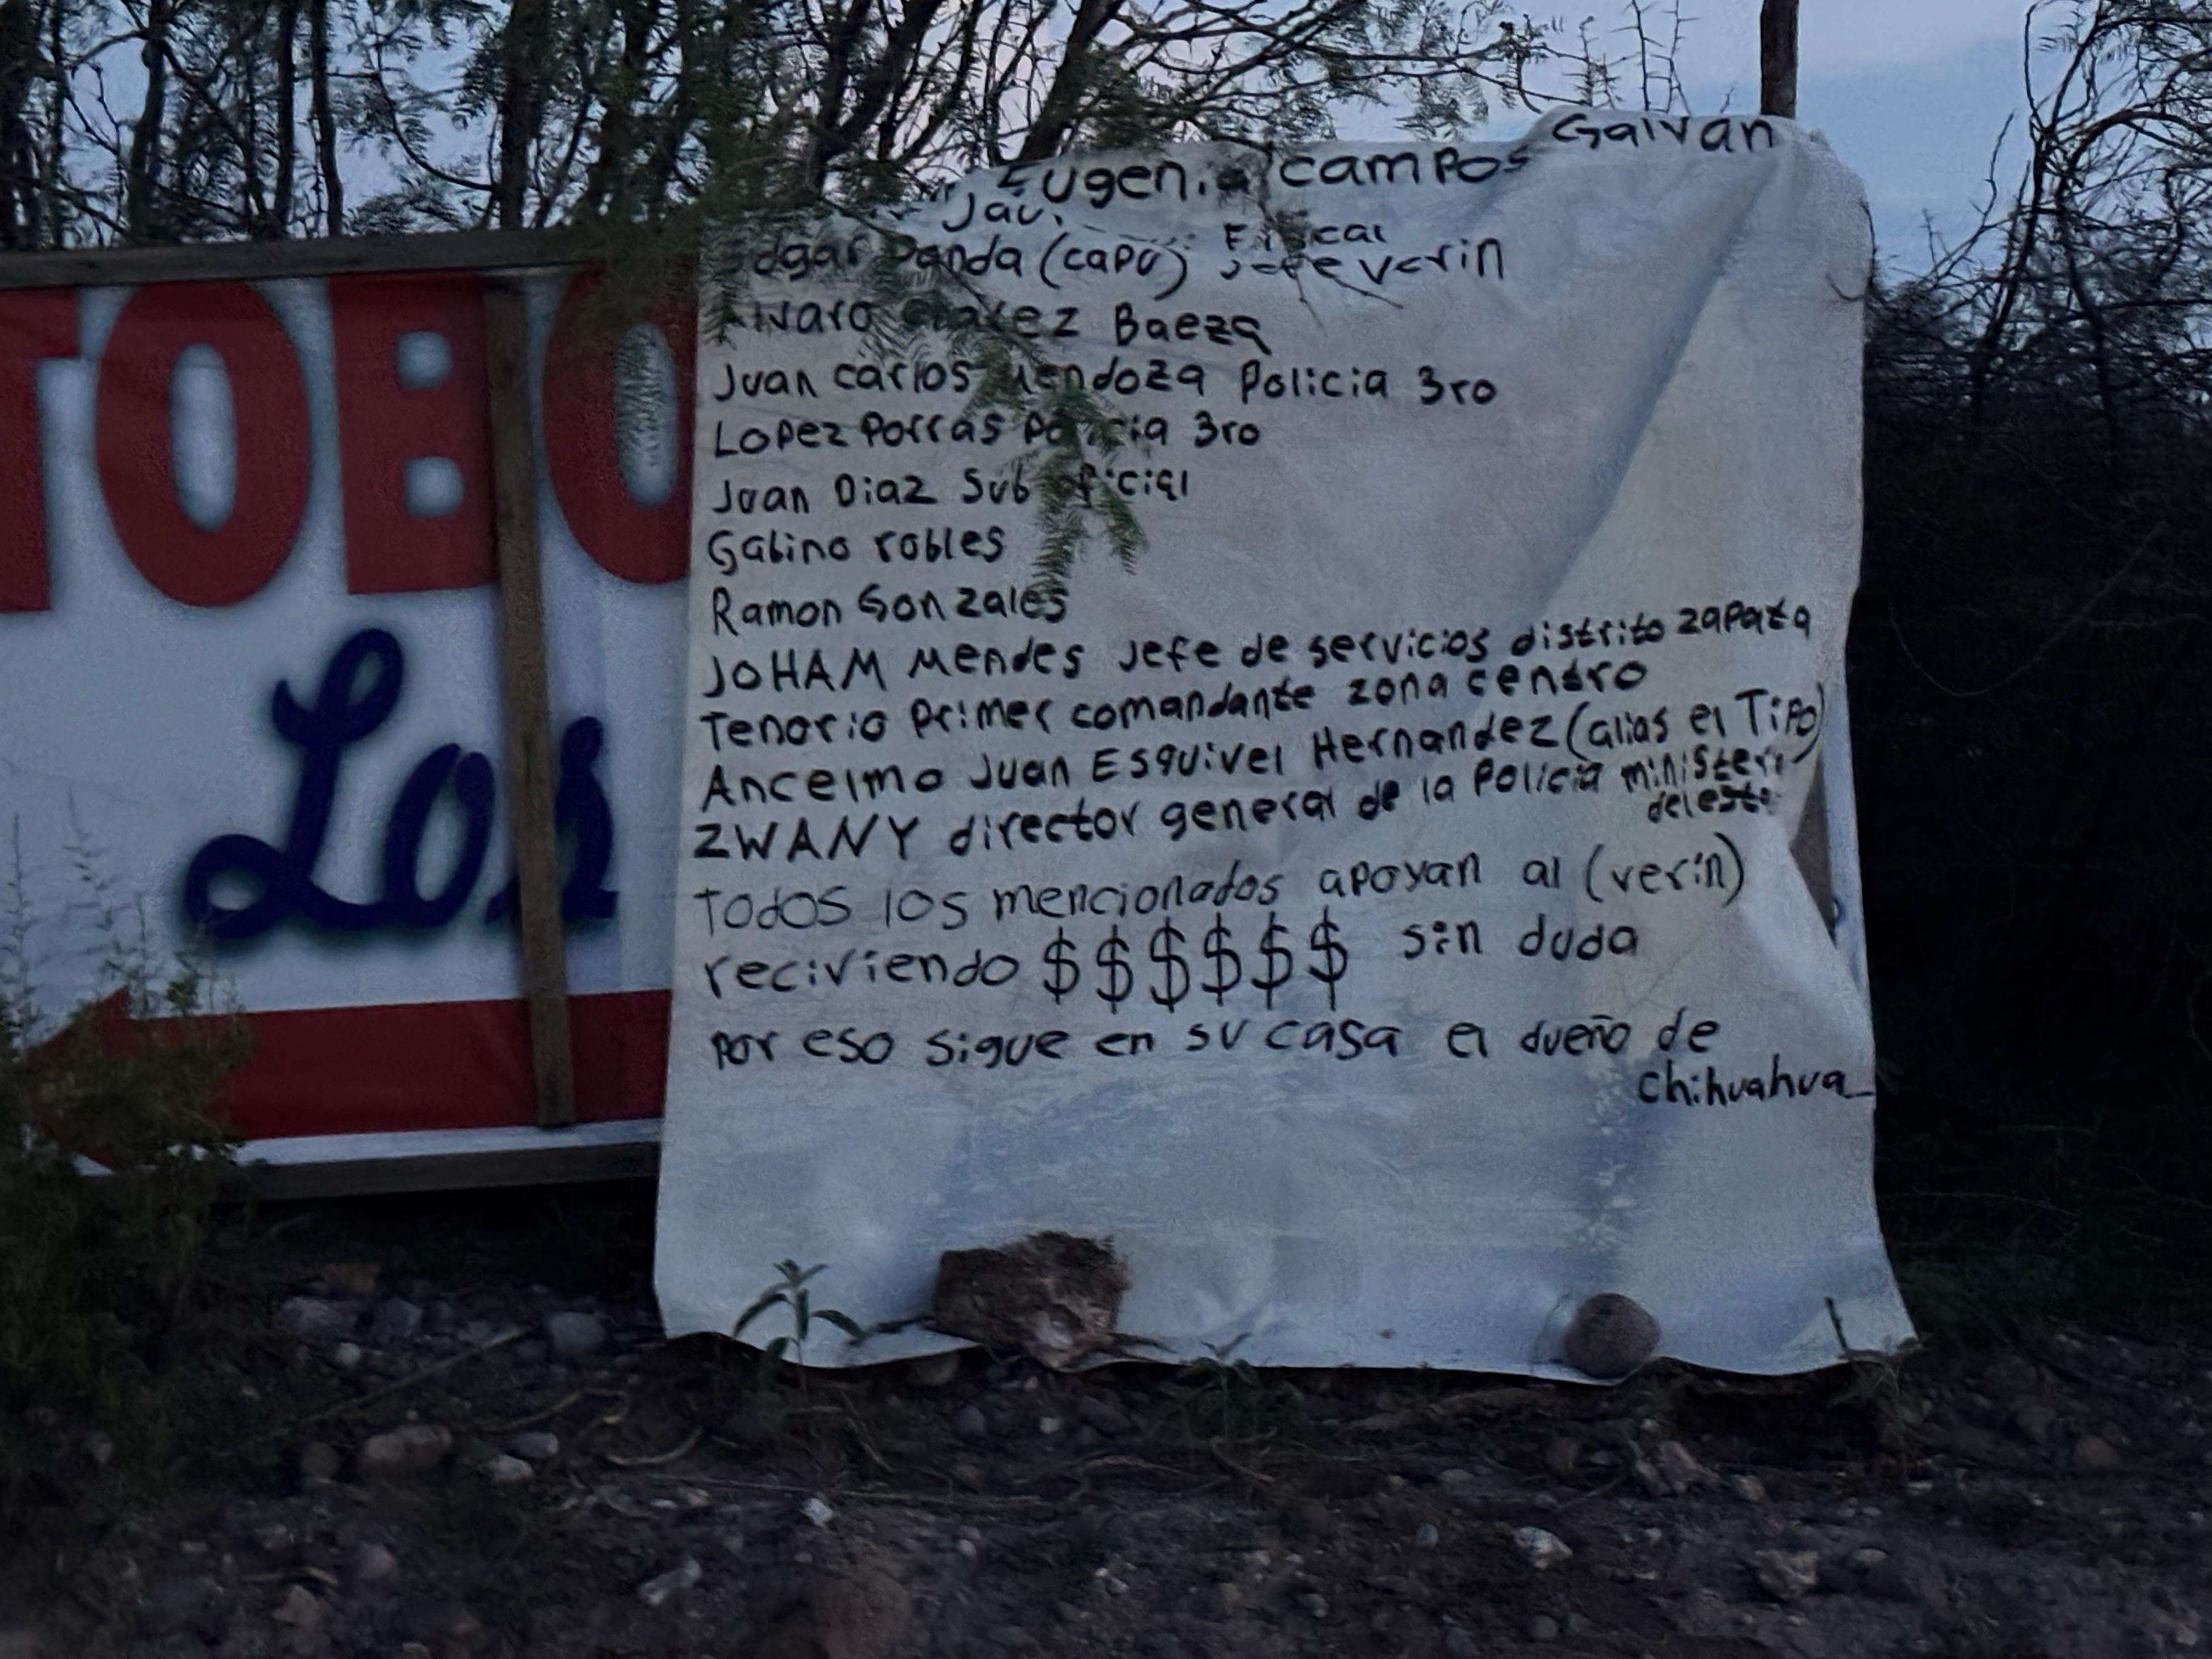 TOBO
Los
Eugenia campos Galvan
Jav
Fiscal
Edgar Panda (capo) Jefe verin
Alvaro Baeza
Juan carlos Mendoza Policia 3ro
Lopez Porras Policia 3ro
Juan Diaz Sub oficial
Gabino robles
Ramon Gonzales
JOHAM Mendes Jefe de servicios distrito zapata
Tenorio Primer comandante zona centro
Ancelmo Juan Esquivel Hernandez (alias el Tipo)
ZWANY director general de la Policia ministeri
del esta
Todos los mencionados apoyan al (verin)
reciviendo $$$$$$ sin duda
por eso sigue en su casa el dueño de
chihuahua